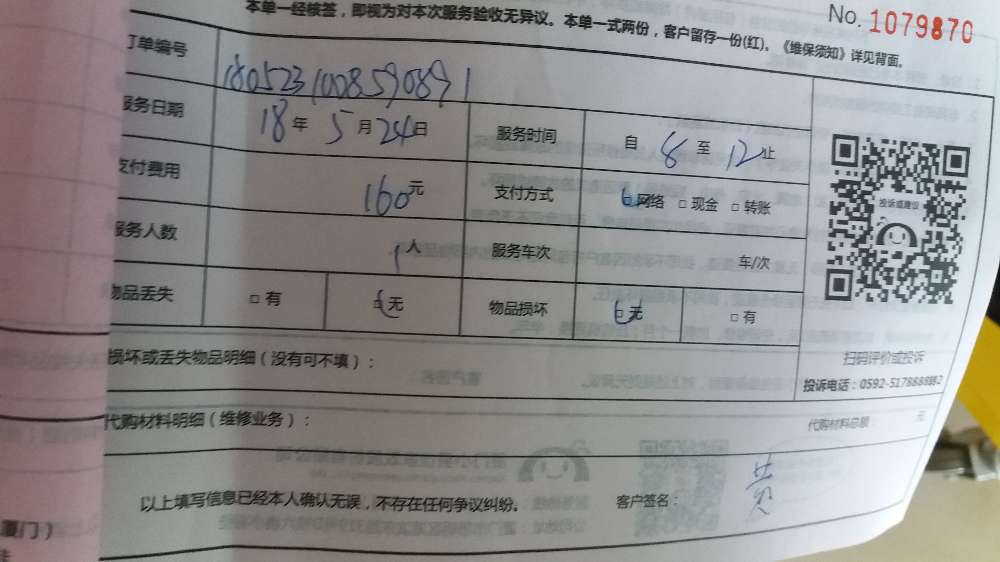 No. 1079870
本单一经核签，即视为对本次服务验收无异议。本单一式两份，客户留存一份(红)。《维保须知》详见背面。
订单编号 180523100859089 1
服务日期 18 年 5 月 24 日 服务时间 自 8 至 12 止
支付费用 160 元 支付方式 网络 □ 现金 □ 转账
服务人数 1 人 服务车次 车/次
物品丢失 □ 有 无 物品损坏 □ 无 □ 有
投诉或建议
损坏或丢失物品明细（没有可不填）：
扫码评价或投诉
投诉电话：0592-5178888
代购材料明细（维修业务）： 代购材料总额： 元
以上填写信息已经本人确认无误，不存在任何争议纠纷。 客户签名： 黄
厦门）